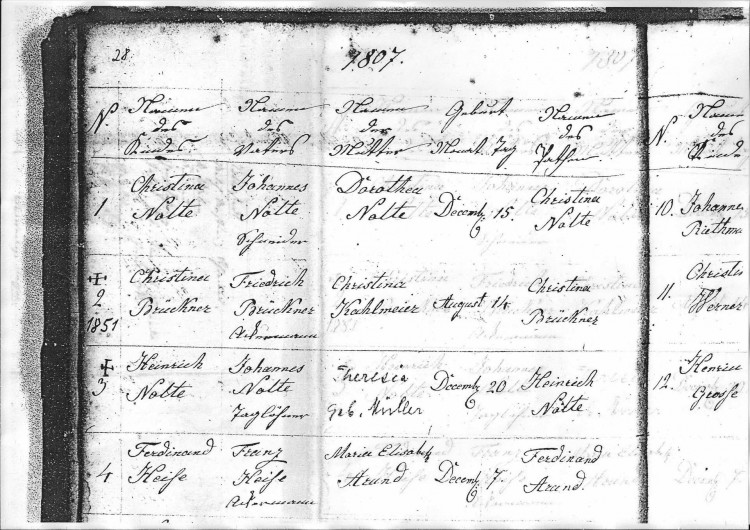 28
1807.
N.
Name des Kindes.
Name des Vaters
Name der Mutter
Geburt Monat. Tag
Name des Pathen
1
Christina Nolte
Johannes Nolte Schneider
Dorothea Nolte
Decemb. 15.
Christina Nolte
2
1851
Christina Brückner
Friedrich Brückner Ackermann
Christina Kahlmeier
August 14
Christina Brückner
3
Heinrich Nolte
Johannes Nolte Taglöhner
Theresia geb. Müller
Decemb. 20
Heinrich Nolte
4
Ferdinand Heise
Franz Heise Ackermann
Maria Elisabeth Arand
Decemb. 7.
Ferdinand Arand.
N.
Name des Kinde
10.
Johanne
11.
Christi Werner
12.
Henrie Grosse